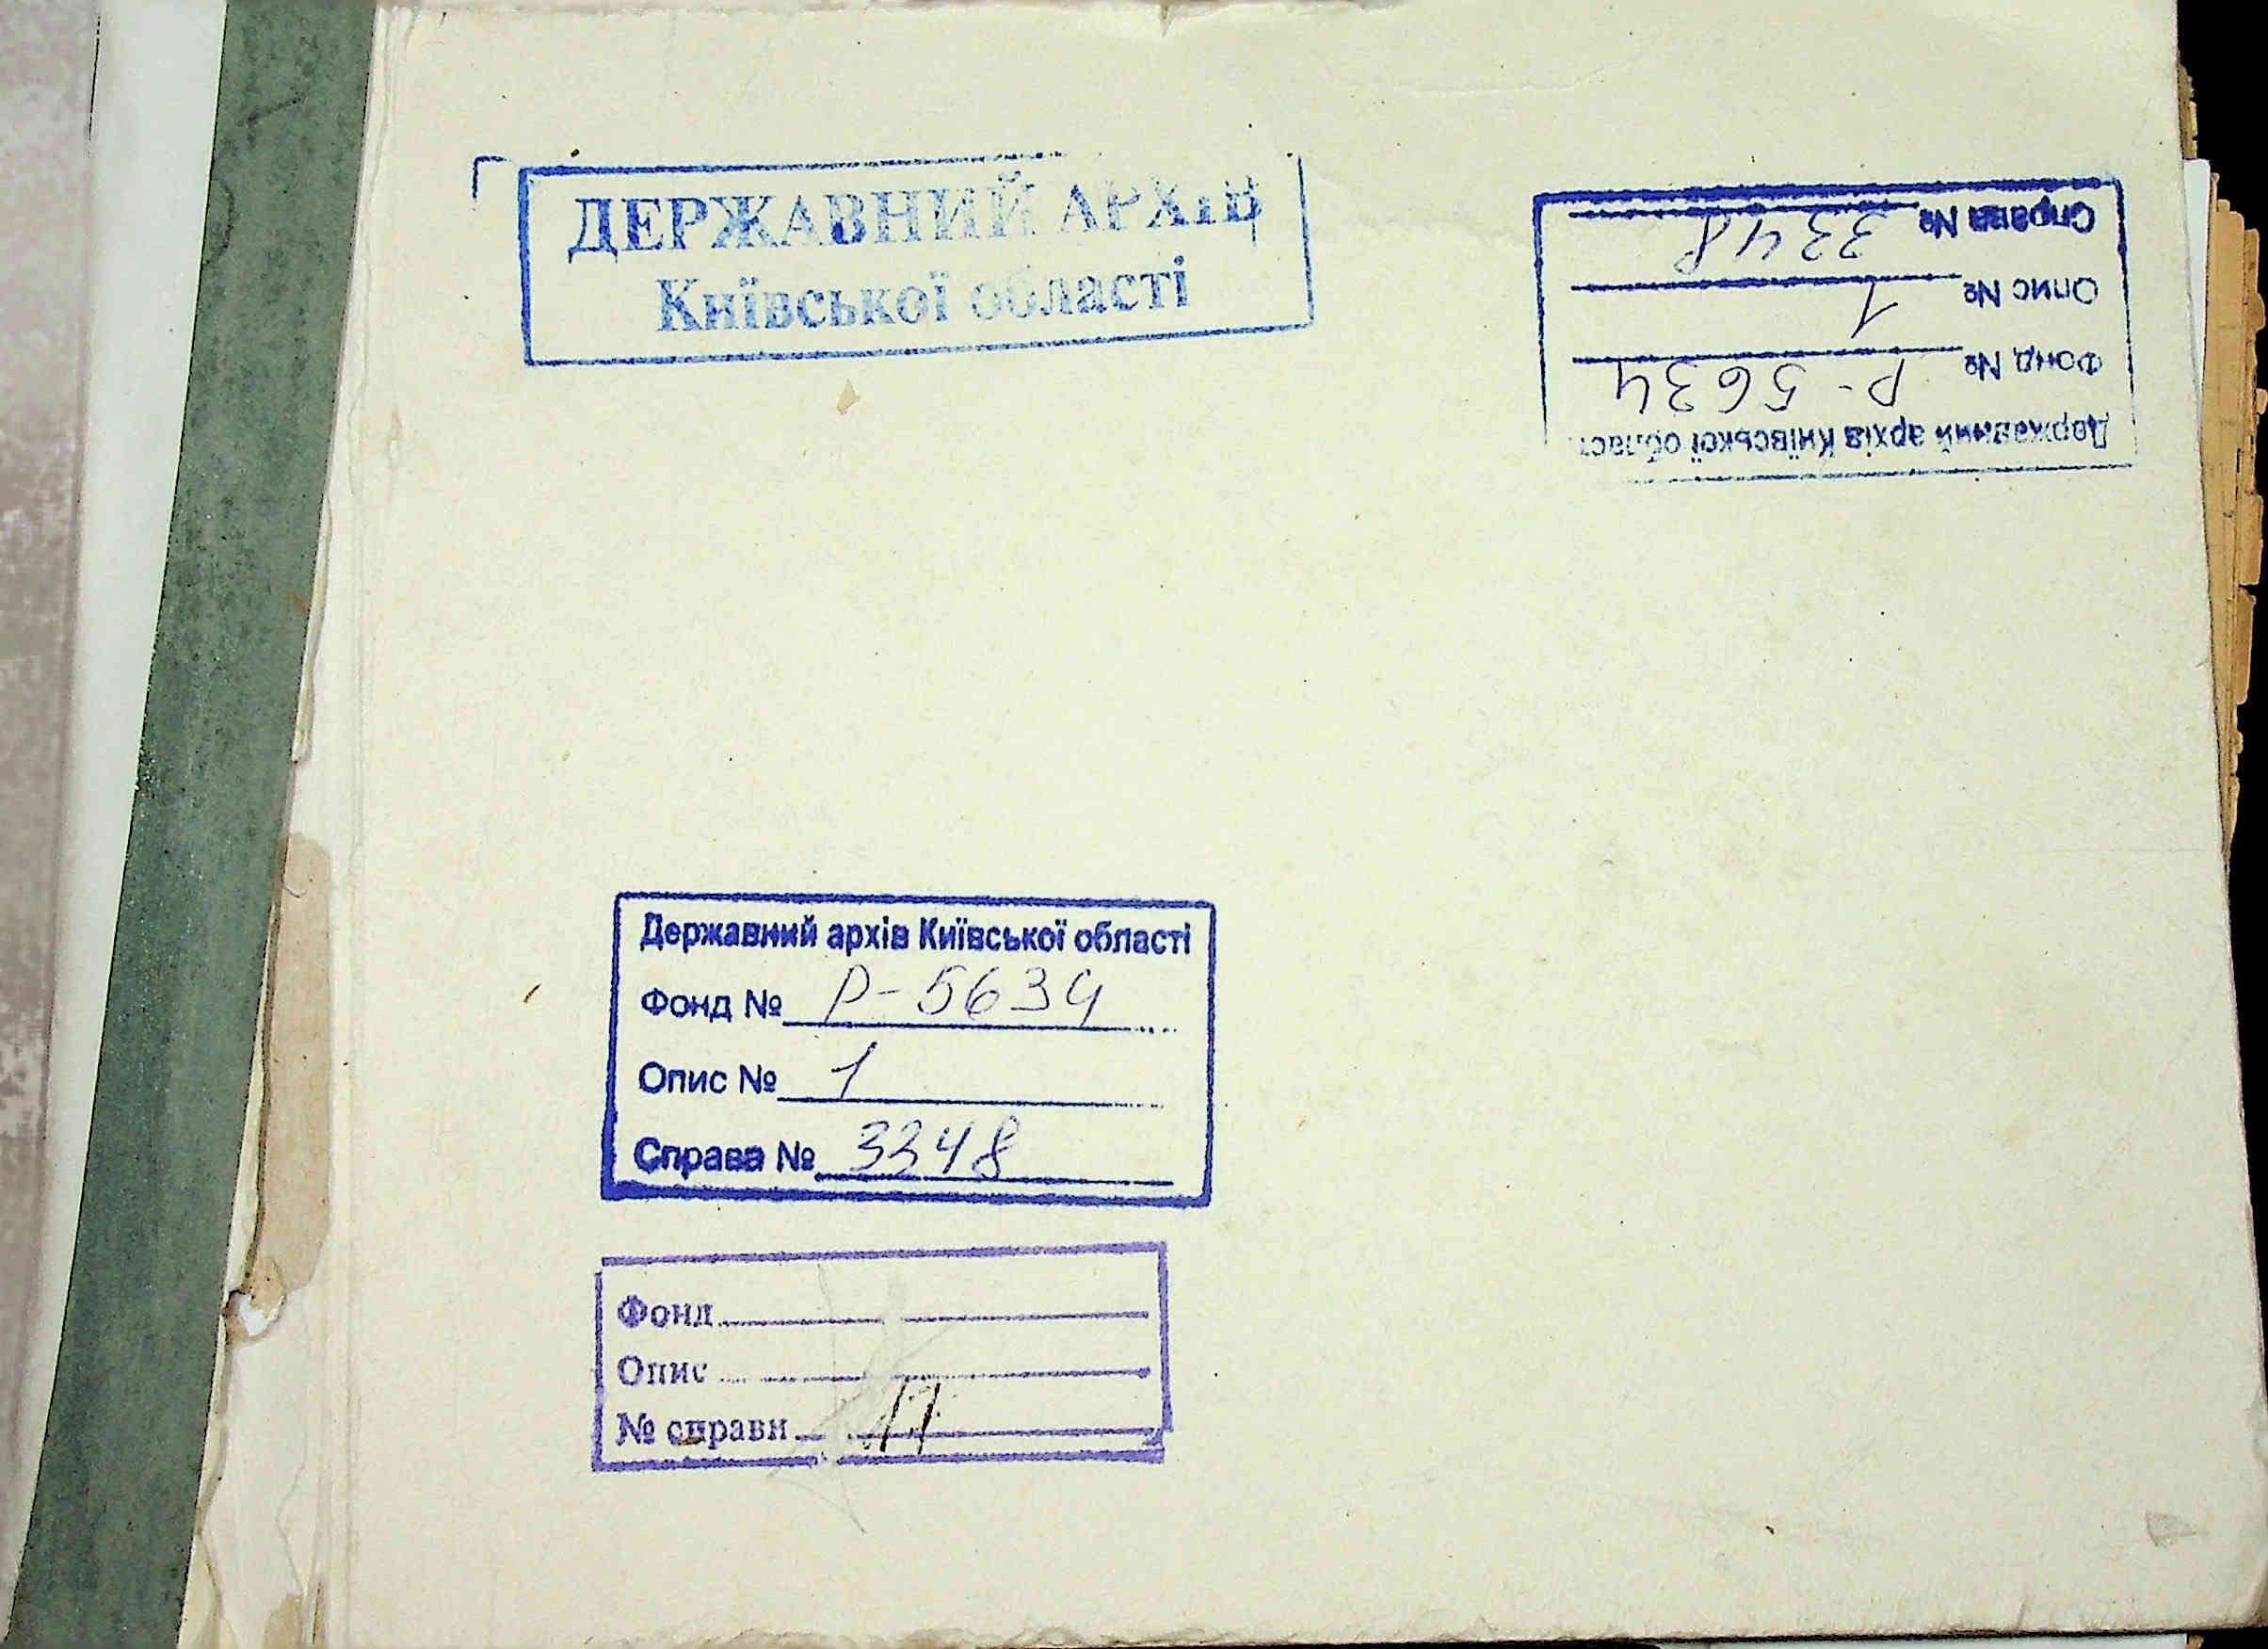 ДЕРЖАВНИЙ АРХІВ
Київської області
Державний архів Київської області
Фонд № Р-5634
Опис № 1
Справа № 3348
Державний архів Київської області
Фонд № Р-5634
Опис № 1
Справа № 3348
Фонд
Опис
№ справи 11